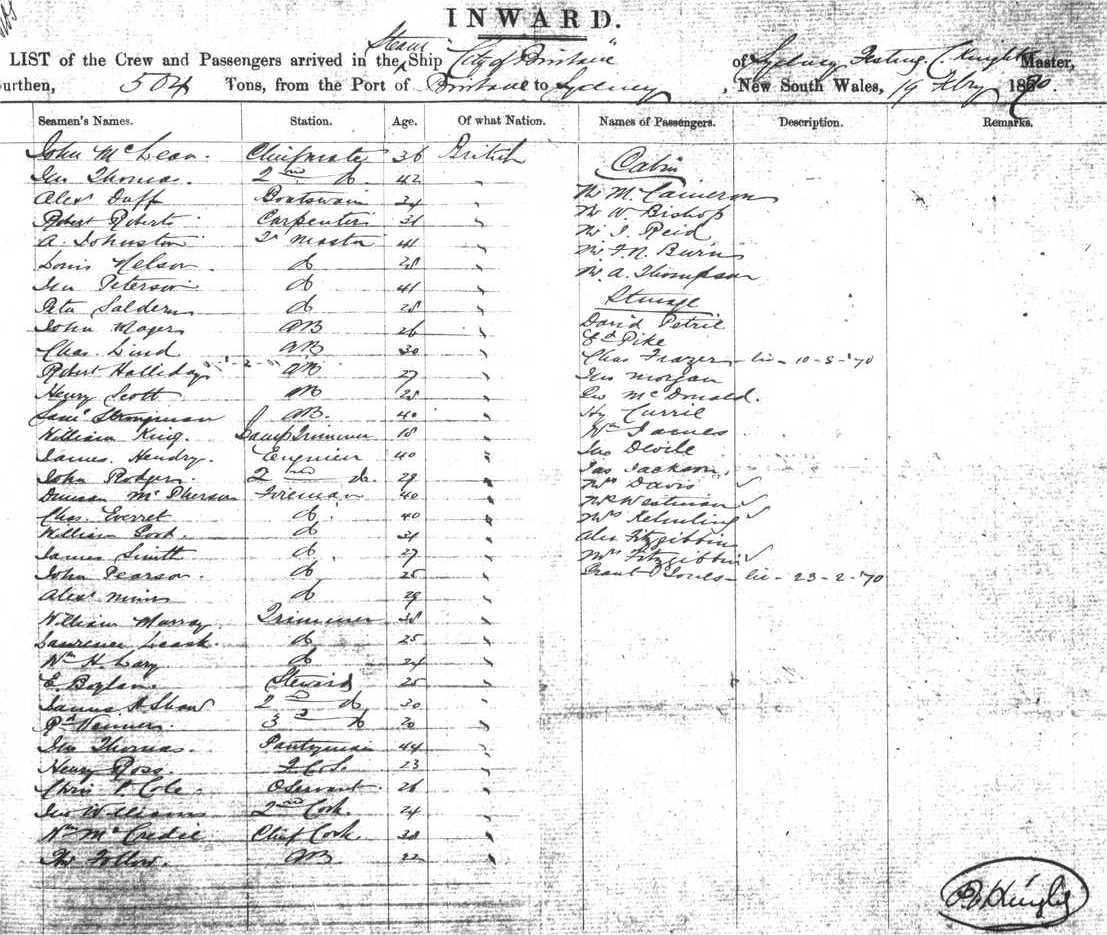 INWARD.
LIST of the Crew and Passengers arrived in the Steam Ship "City of Brisbane" of Sydney, C. Knight Master,
urthen, 504 Tons, from the Port of Brisbane to Sydney, New South Wales, 19 Febry 1870.
Seamen's Names. Station. Age. Of what Nation. Names of Passengers. Description. Remarks.
John McLean. Chief mate 36 British
Jno Thomas. 2nd do 42 "
Alexr Duff Boatswain 34 "
Robert Roberts Carpenter 31 "
A. Johnston 2r Master 41 "
Louis Nelson. do 28 "
Jno Peterson do 41 "
Peter do 28 "
John AB 26 "
Chas. Lind AB 30 "
Robert Halliday AB 27 "
Henry Scott AB 28 "
Saml AB. 40 "
William King. Lamp Trimmer 18 "
James Hendry. Engineer 40 "
John Rodger. 2nd do. 29 "
Duncan McPherson Fireman 40 "
Chas. Everret do. 40 "
William Cook. do 31 "
James Smith do. 27 "
John Pearson. do 25 "
Alexr do 29 "
William Murray Trimmer 38 "
Laurence Leask. do 25 "
Wm H. do 24 "
E. Steward 25 "
James A Shaw 2nd do 30 "
Rd 3rd do 20 "
Jno Thomas. Pantryman 44 "
Henry Ross. 23 "
P. Cole Servant 26 "
Jno Williams 2nd Cook. 24 "
Wm McCredie Chief Cook. 38 "
AB 22 "
Cabin
Mr M. Cameron
Mr W. Bishop
Mr J. Reid
Mr F. N. Burns
Mr A. Thompson
Steerage
David Petrie
Ed Pike
Chas Frazer - lic - 10-8-'70
Jno Morgan
Geo McDonald.
Hy Currie
Wm James
Jno
Jas Jackson.
Mrs Davis ✓
Westman ✓
Mrs ✓
Alex Fitzgibbin
Mrs Fitzgibbin ✓
Grant Jones - lic - 23-2-'70